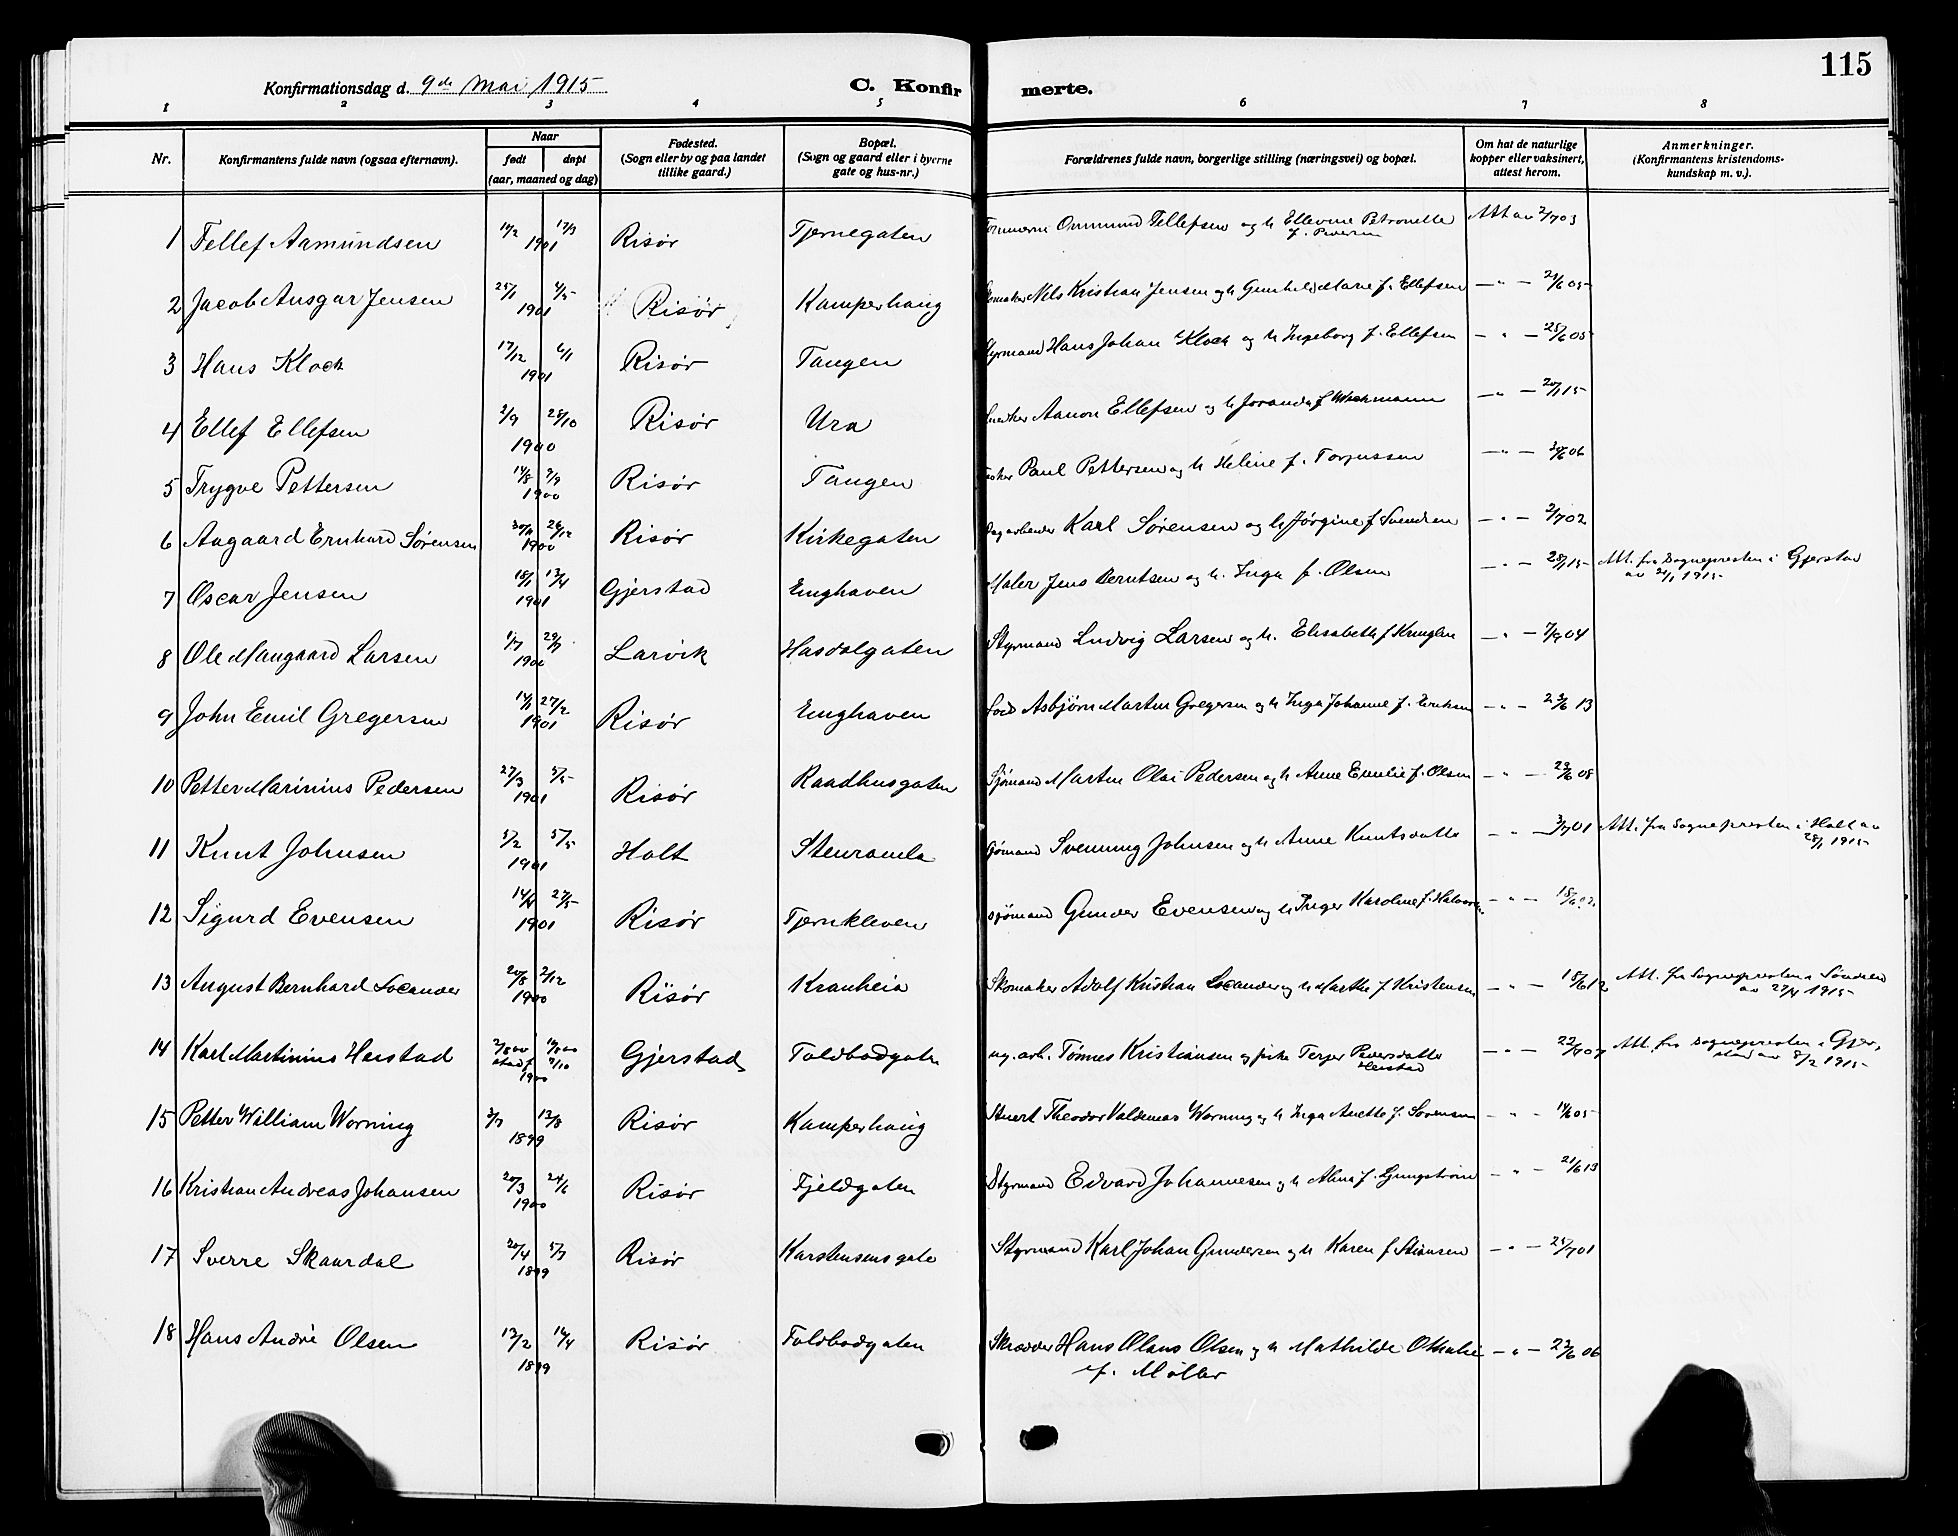 115
Konfirmationsdag d. 9de Mai 1915
C. Konfirmerte.
1 2 3 4 5 6 7 8
Nr.
Konfirmantens fulde navn (ogsaa efternavn).
Naar
født døpt
(aar, maaned og dag)
Fødested.
(Sogn eller by og paa landet
tillike gaard.)
Bopæl.
(Sogn og gaard eller i byerne
gate og hus-nr.)
Forældrenes fulde navn, borgerlige stilling (næringsvei) og bopæl.
Om hat de naturlige
kopper eller vaksinert,
attest herom.
Anmerkninger.
(Konfirmantens kristendoms-
kundskap m. v.).
1 Tellef Aamundsen 1901 Risør Tjernegaten Ommund Tellefsen og h Ellevine Petronelle Att av 2/7 03
2 Jacob Ansgar Jensen 25/1 1901 Risør Kamperhaug Nils Kristian Jensen og h Gunhild Marie f. Ellefsen - " -
3 Hans Klock 17/12 6/1 1901 Risør Tangen Hans Johan Klock og h Ingeborg f. Ellefsen - " - 25/6 05
4 Ellef Ellefsen 2/9 28/10 1900 Risør Ura Aanon Ellefsen og h - " -
5 Trygve Pettersen 14/8 9/9 1900 Risør Tangen Paul Pettersen og h Heline f. Torjussen - " - 06
6 Aagaard Ernhard Sørensen 30/11 26/12 1900 Risør Kirkegaten Karl Sørensen og h Jørgine f. Svendsen - " - 2/7 02
7 Oscar Jensen 18/1 1901 Gjerstad Enghaven Maler Jens Berntsen og h. Inga f. Olsen - " - Att. fra Sognepresten i Gjerstad
av 1915
8 Ole Maugaard Larsen 1900 Larvik Hasdalgaten Styrmand Ludvig Larsen og h. Elisabeth f. - " - 04
9 John Emil Gregersen 27/2 1901 Risør Enghaven Asbjørn Martin Gregersen og h Inga Johanne f. Eriksen - " - 13
10 Petter Marinius Pedersen 27/3 5/5 1901 Risør Raadhusgaten Sjømand Martin Olai Pedersen og h Anne Emilie f. Olsen - " - 08
11 Knut Johnsen 5/2 5/5 1901 Holt Stenramla Sjømand Svenning Johnsen og h Anne Knutsdatter - " - 3/7 01 Att. fra Sognepresten i Holt av
28/1 1915
12 Sigurd Evensen 14/4 27/5 1901 Risør Tjernkleven Sjømand Gunder Evensen og h Inger Karoline f. - " -
13 August Bernhard Locander 20/8 2/12 1900 Risør Kranheia Skomaker Adolf Kristian Locander og h Marthe f. Kristensen - " - 18/6 12 Att. fra Sognepresten i Søndeled
av 27/4 1915
14 Karl Martinius Heistad 2/8 00 1900 Gjerstad Toldbodgaten Tønnes Kristiansen og pike Terjer Pedersdatter
Heistad - " - Att. fra sognepresten i Gjer-
stad av 8/2 1915
15 Petter William Worning 3/7 13/8 1899 Risør Kamperhaug Theodor Valdemar Worning og h Inga Anette f. Sørensen - " - 05
16 Kristian Andreas Johansen 20/3 24/6 1900 Risør Fjeldgaten Styrmand Edvard Johannesen og h Alma f. Ljungstrøm - " - 21/6 13
17 Sverre Skaardal 20/4 5/7 1899 Risør Karstensens gate Styrmand Karl Johan Gundersen og h Karen f. Stiansen - " - 25/7 01
18 Hans André Olsen 12/2 16/4 1899 Risør Toldbodgaten Skrædder Hans Olaus Olsen og h Mathilde Othalie - " - 06
f. Møller